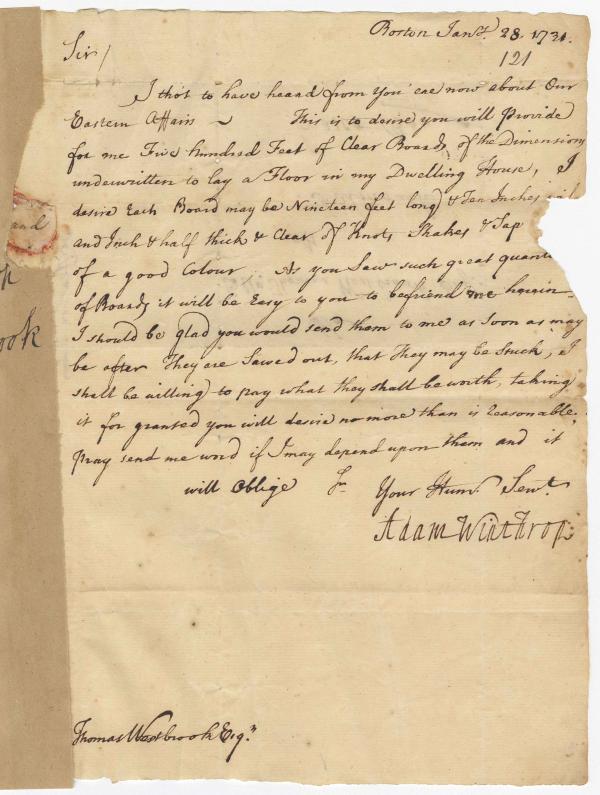 Boston Janry. 28. 1731.
121
Sir/
I thot to have heard from You ere now about Our
Eastern Affairs ~ This is to desire you will Provide
for me Five hundred Feet of Clear Boards of the Dimension
underwritten to lay a Floor in my Dwelling House, I
desire Each Board may be Nineteen feet long & Ten Inches
and Inch & half thick & Clear of Knots Shakes & Sap
of a good Colour As you Saw such great quanti
of Boards it will be Easy to you to befriend me herein
I should be glad you would send them to me as soon as may
be after They are Sawed out, that They may be Stuck, I
shall be willing to pay what they shall be worth, taking
it for granted you will desire no more than is reasonable.
Pray send me word if I may depend upon them and it
will Oblige Sr. Your Hum. Servt.
Adam Winthrop
Thomas Westbrook Esqr.
and
ook